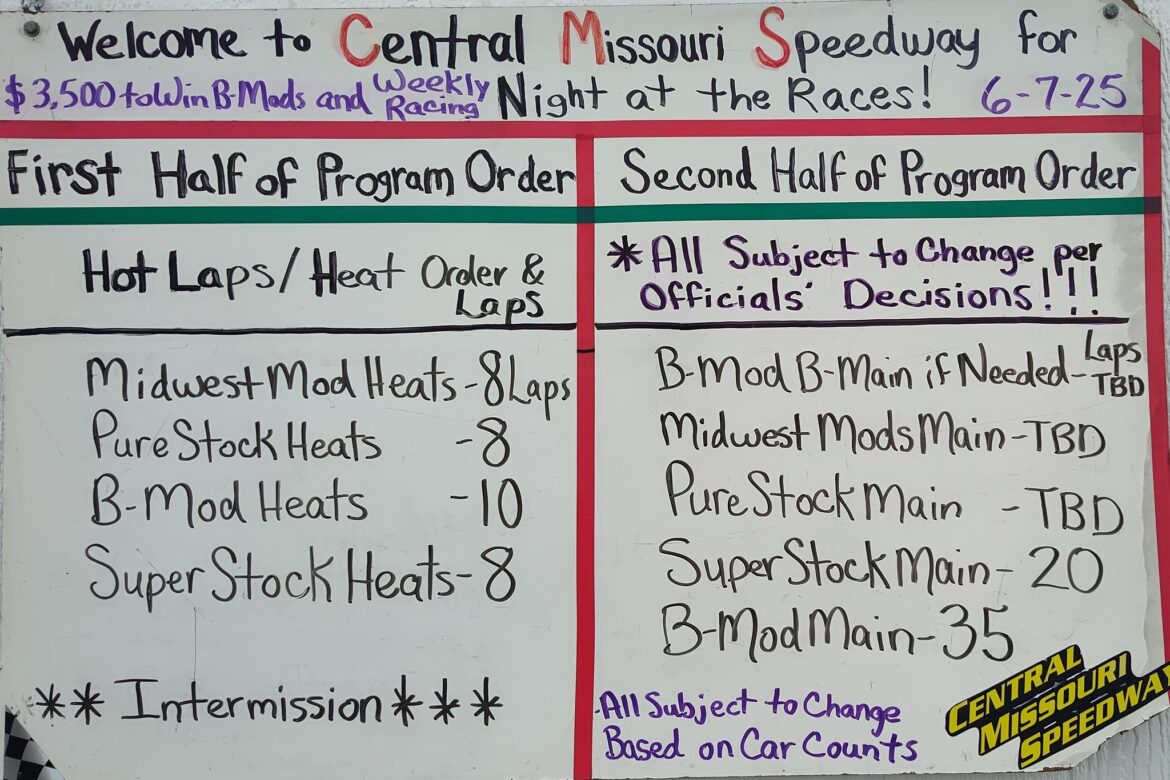 Welcome to Central Missouri Speedway for
$3,500 to Win B-Mods and Weekly Racing Night at the Races! 6-7-25
First Half of Program Order
Hot Laps/Heat Order &
Laps
Midwest Mod Heats - 8 Laps
Pure Stock Heats - 8
B-Mod Heats - 10
Super Stock Heats - 8
** Intermission ***
Second Half of Program Order
*All Subject to Change per
Officials' Decisions!!!
B-Mod B-Main if Needed - Laps TBD
Midwest Mods Main - TBD
Pure Stock Main - TBD
Super Stock Main - 20
B-Mod Main - 35
-All Subject to Change
Based on Car Counts
CENTRAL
MISSOURI
SPEEDWAY